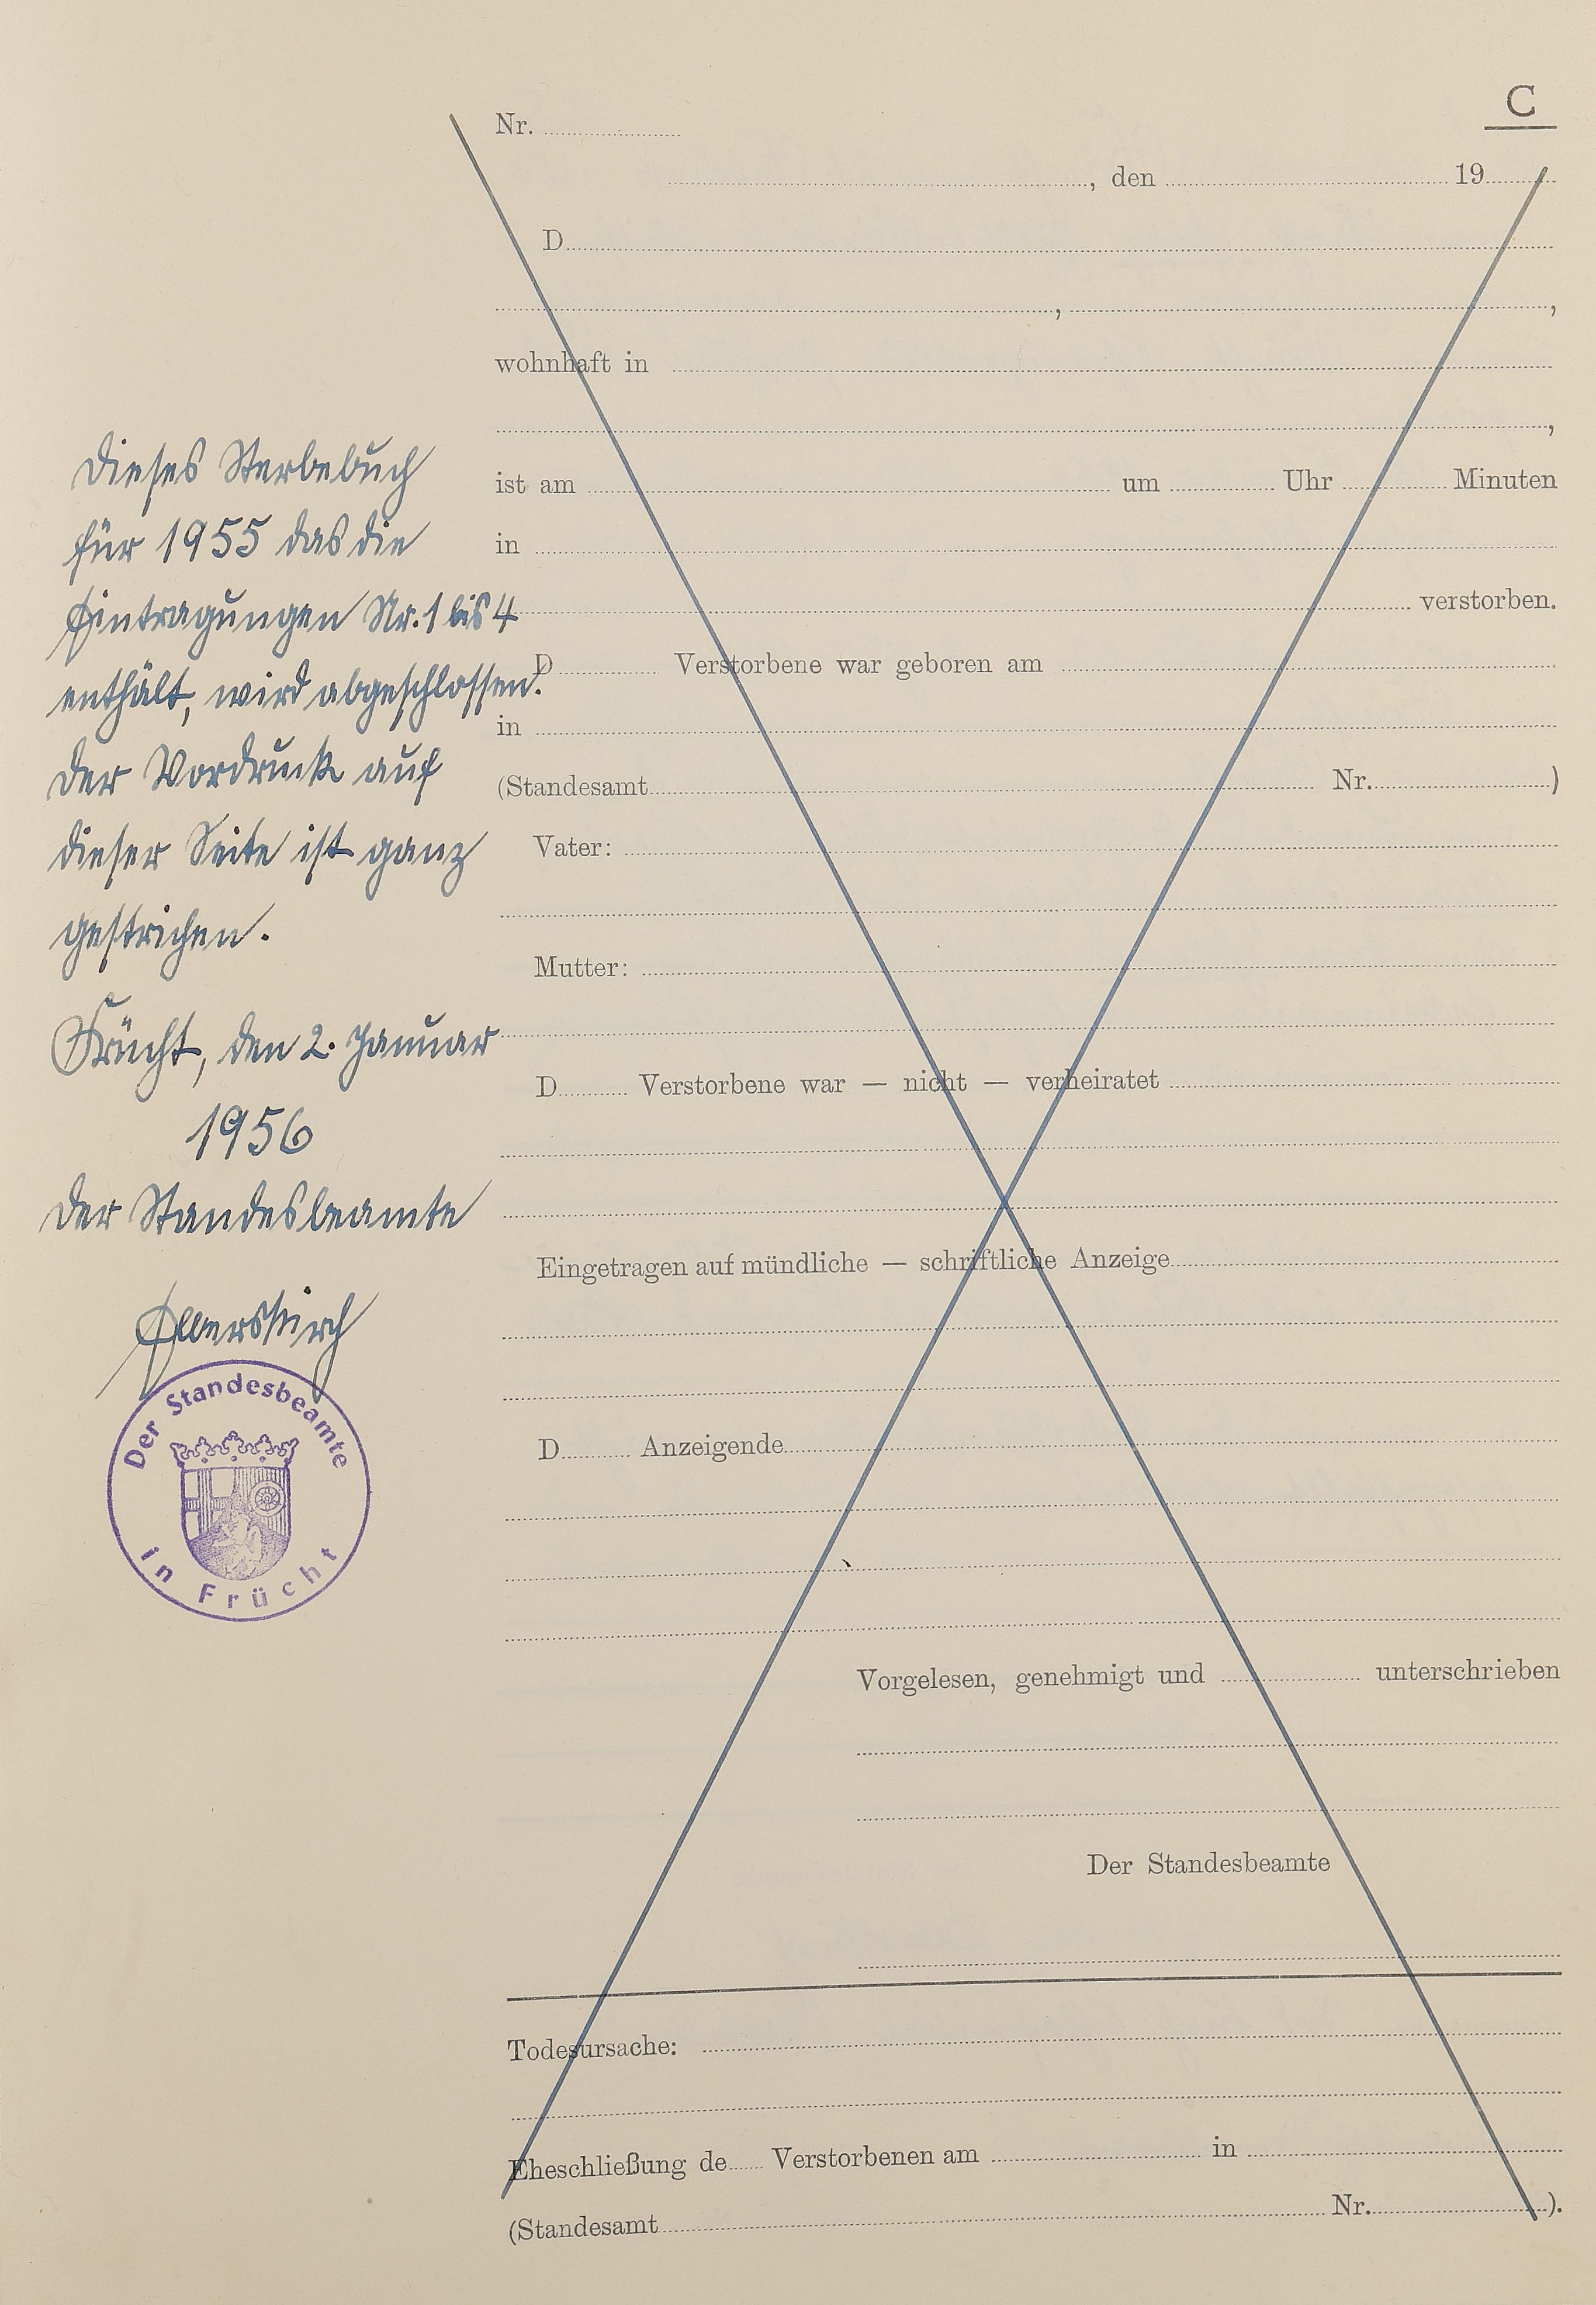 C
Nr.
, den 19
D
, ,
wohnhaft in
,
ist am um Uhr Minuten
in
verstorben.
D Verstorbene war geboren am
in
(Standesamt Nr. )
Vater:
Mutter:
D Verstorbene war — nicht — verheiratet
Eingetragen auf mündliche — schriftliche Anzeige
D Anzeigende
Vorgelesen, genehmigt und unterschrieben
Der Standesbeamte
Todesursache:
Eheschließung de Verstorbenen am in
(Standesamt Nr. ).
Dieses Sterbebuch
für 1955 das die
Eintragungen Nr. 1 bis 4
enthält, wird abgeschlossen.
Der Vordruck auf
dieser Seite ist ganz
gestrichen.
Frücht, den 2. Januar
1956
Der Standesbeamte
Der Standesbeamte
in Frücht